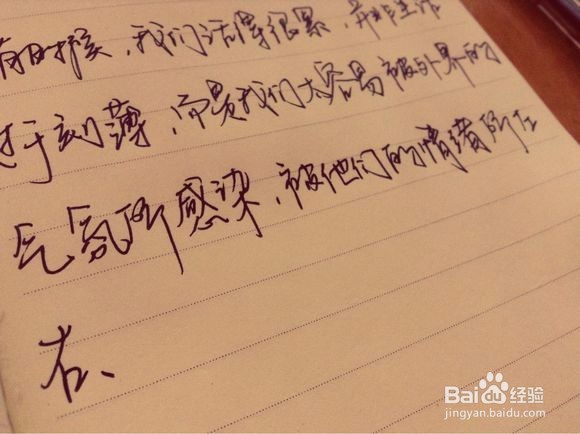 有时候,我们活得很累,并非生活
过于刻薄,而是我们太容易被外界的
气氛所感染,被他们的情绪所左
右、
Baidu经验
jingyan.baidu.com